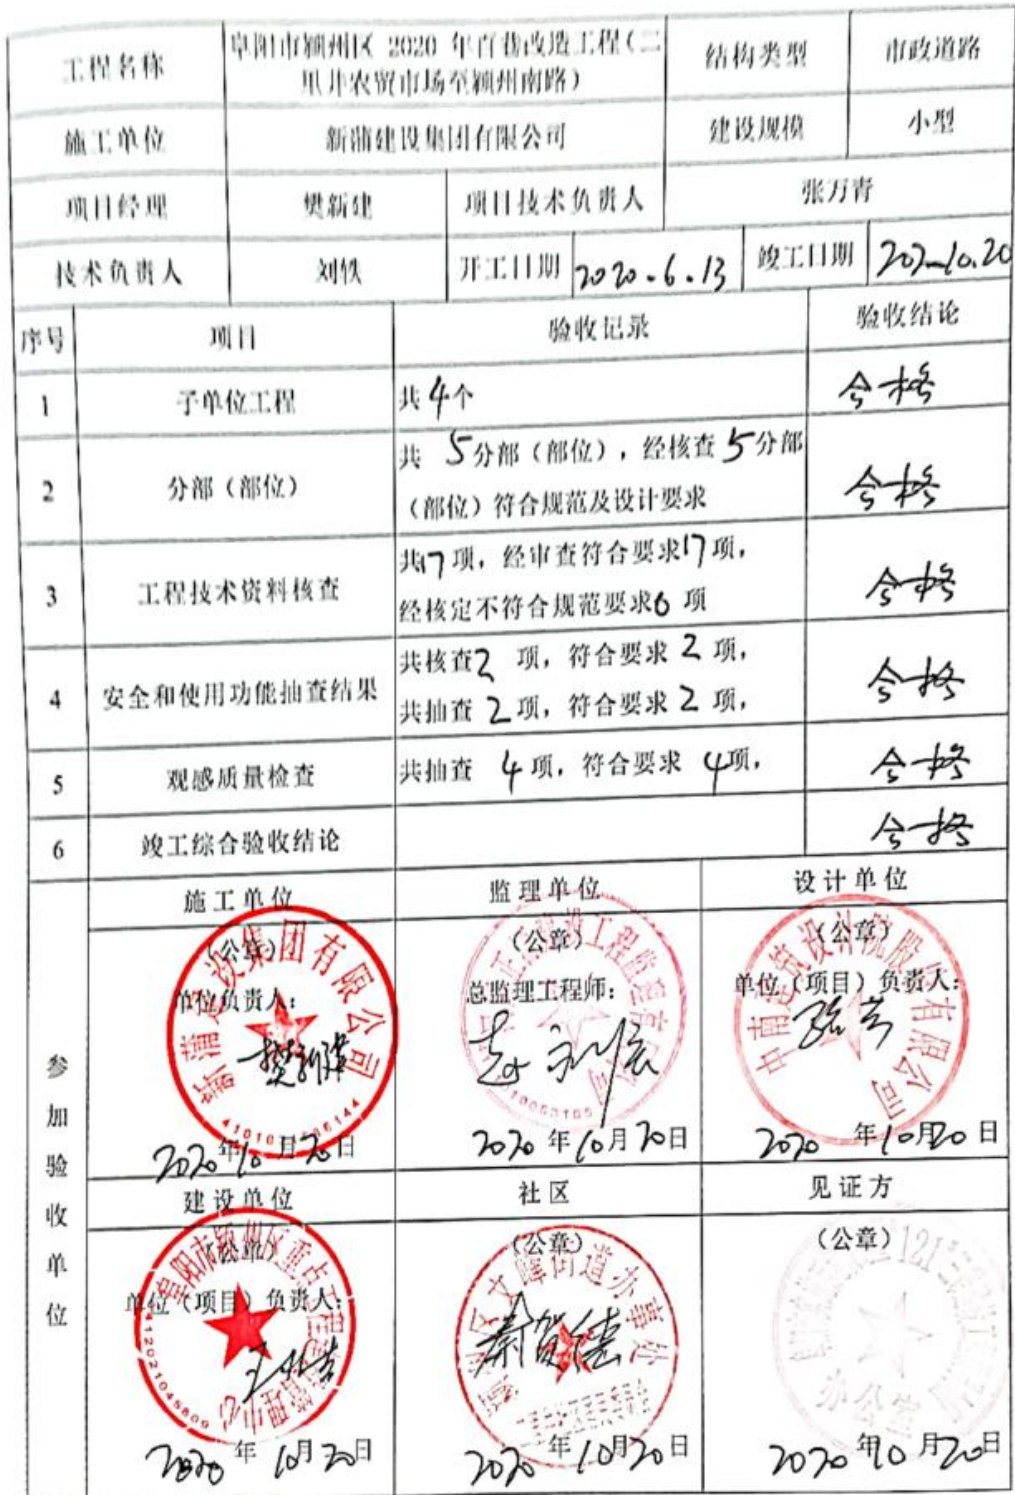 工程名称
阜阳市颍州区 2020 年百巷改造工程（二
里井农贸市场至颍州南路）
结构类型
市政道路
施工单位
新蒲建设集团有限公司
建设规模
小型
项目经理
樊新建
项目技术负责人
张万青
技术负责人
刘轶
开工日期
2020.6.13
竣工日期
202.10.20
序号
项目
验收记录
验收结论
1
子单位工程
共4个
合格
2
分部（部位）
共 5分部（部位），经核查5分部
（部位）符合规范及设计要求
合格
3
工程技术资料核查
共17项，经审查符合要求17项，
经核定不符合规范要求0 项
合格
4
安全和使用功能抽查结果
共核查2 项，符合要求 2 项，
共抽查 2项，符合要求 2 项，
合格
5
观感质量检查
共抽查 4项，符合要求 4项，
合格
6
竣工综合验收结论
合格
参加验收单位
施工单位
（公章）
单位负责人：
樊新建
新蒲建设集团有限公司
2020年10月20日
监理单位
（公章）
总监理工程师：
2020 年10月20日
设计单位
（公章）
单位（项目）负责人：
中南建筑设计院股份有限公司
2020 年10月20日
建设单位
（公章）
单位（项目）负责人：
阜阳市颍州区重点工程建设管理中心
2020年10月20日
社区
（公章）
颍州区文峰街道办事处
秦贺德
2020年10月20日
见证方
（公章）
办公室
2020年10月20日